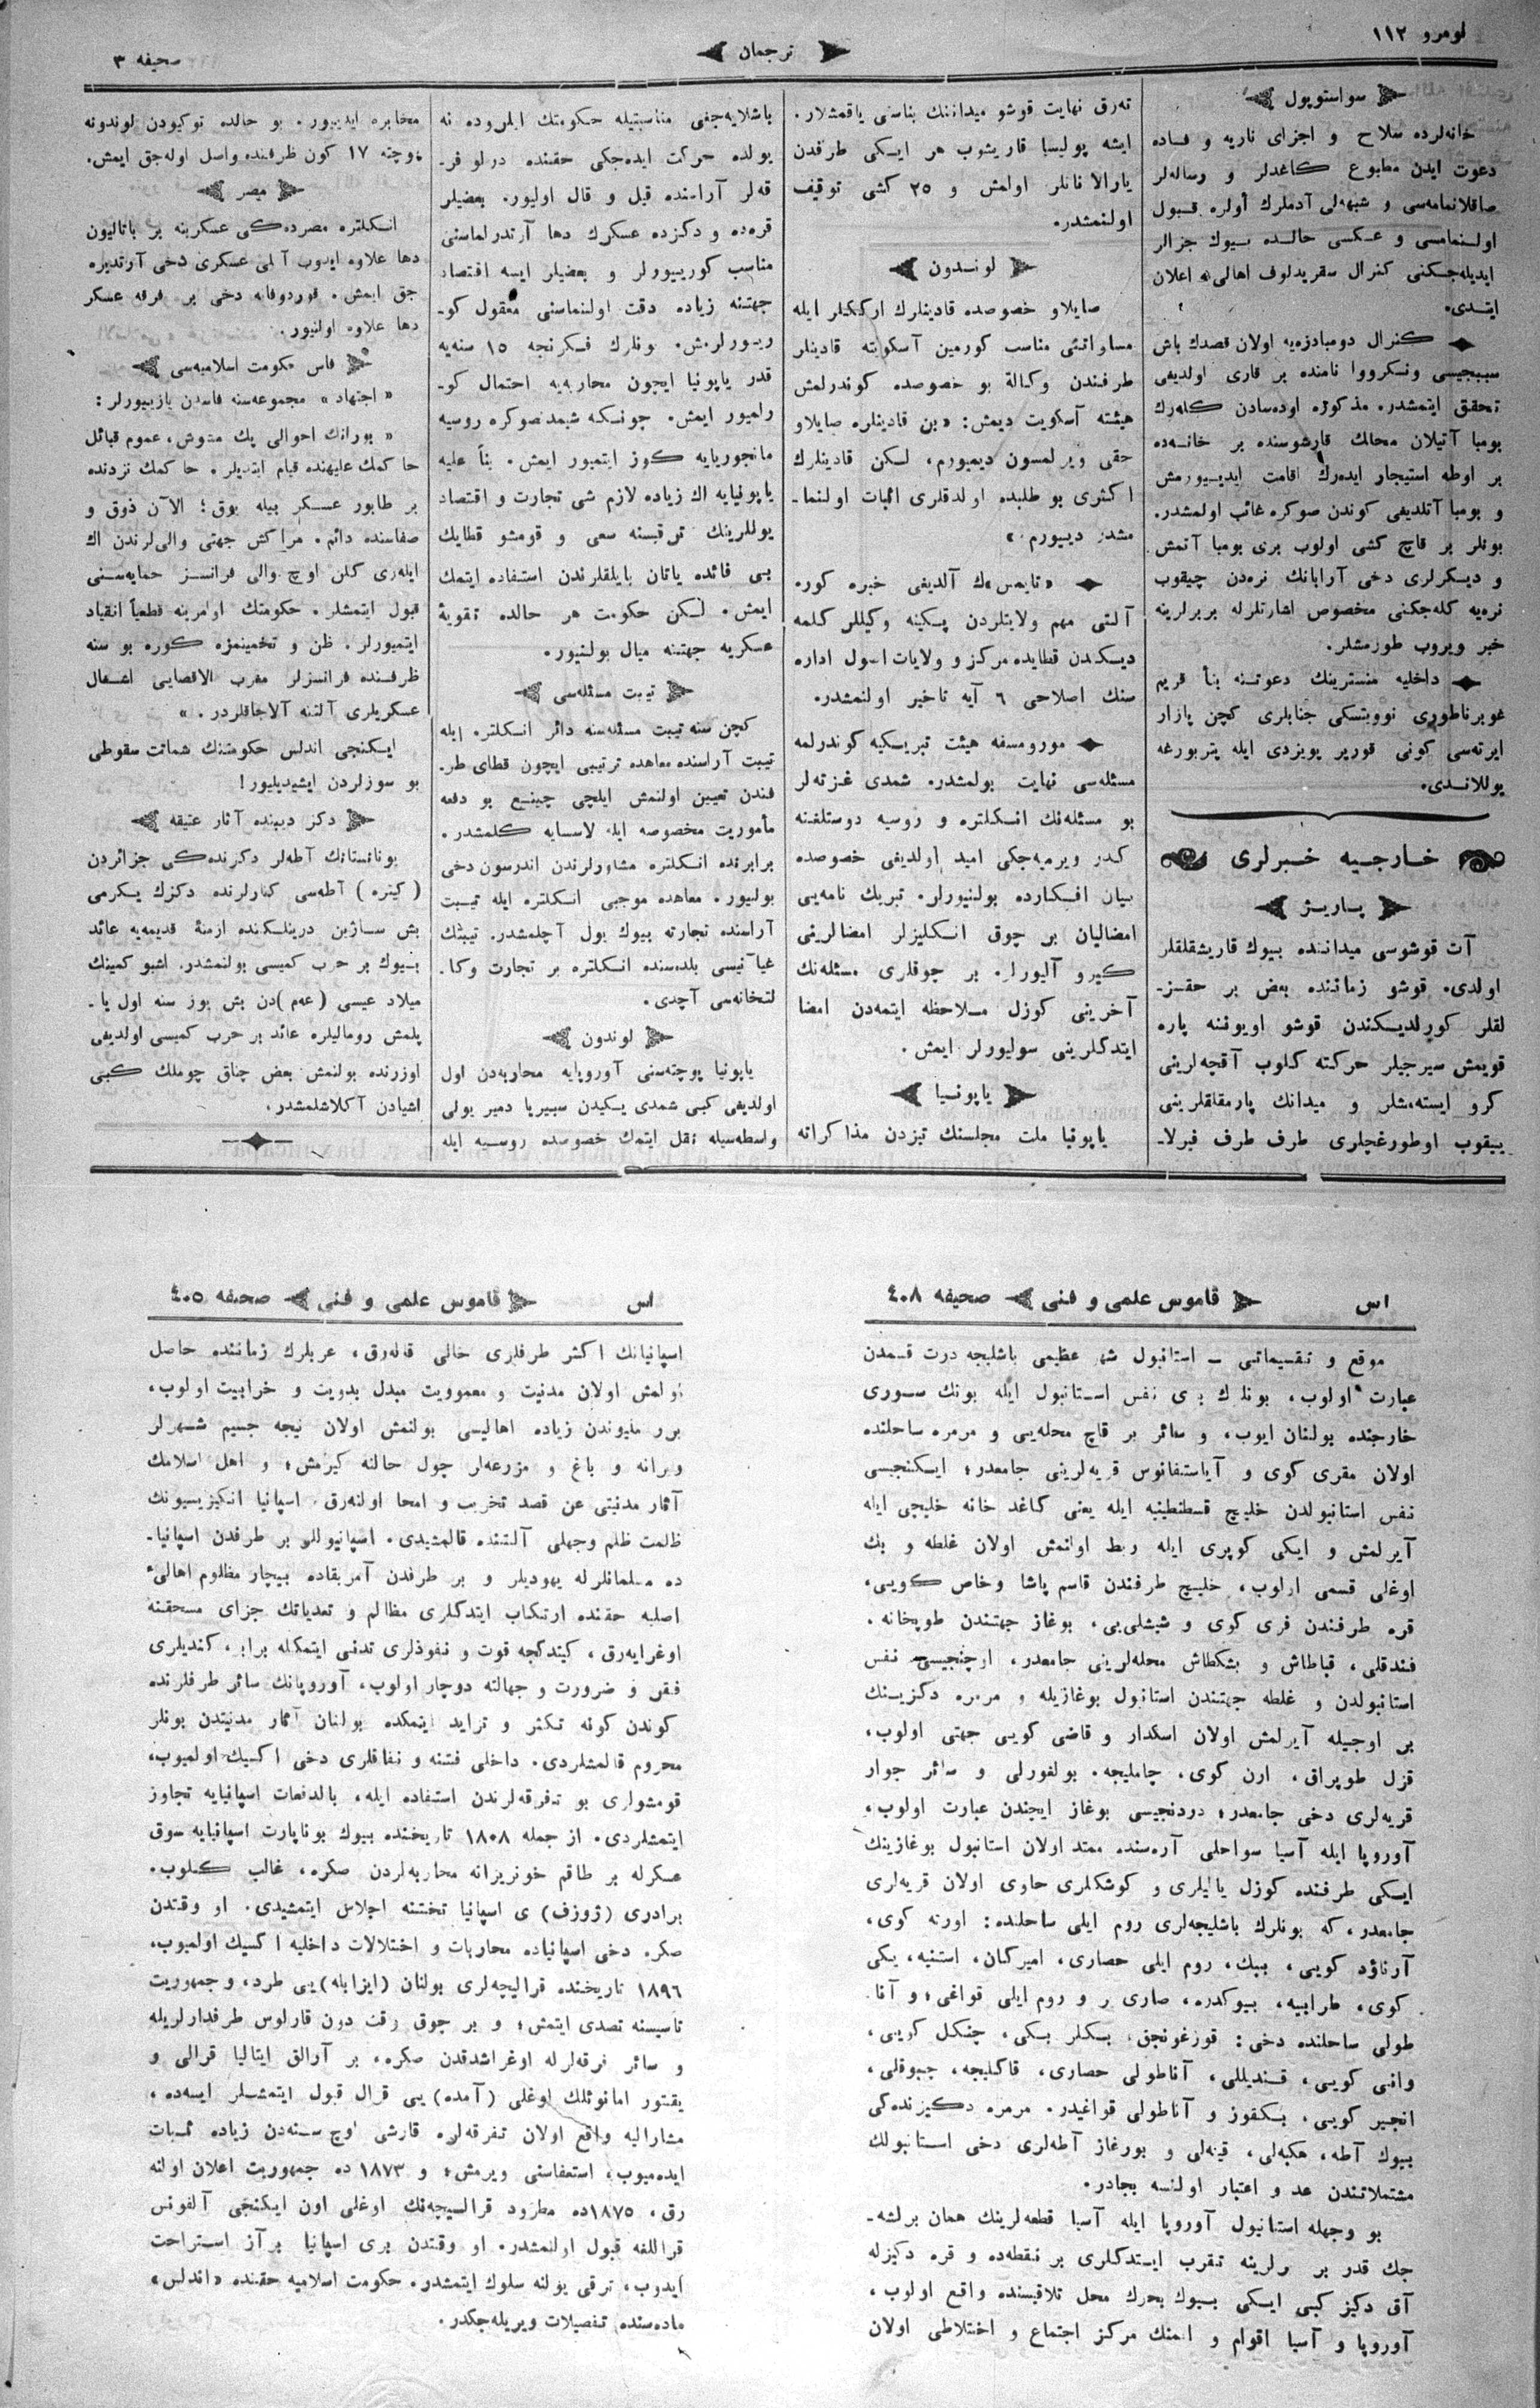 نومرو ١١٢
ترجمان
صحیفه ٣
سواستوپول
خانه‌لرده سلاح و اجزای ناریه و فساده
دعوت ایدن مطبوع كاغدلر و رساله‌لر
صاقلانمامه‌سی و شبهه‌لی آدملرك أولره قبول
اولنمامسی و عكسی حالده بیوك جزالر
ایدیله‌جكنی كنرال سقریدلوف اهالی‌ه اعلان
ایتدی.
كنرال دومبادزه‌یه اولان قصدك باش
سببجیسی ونسكرووا نامنده بر قاری اولدیغی
تحقق ایتمشدر. مذكوره اوده‌سادن كله‌رك
بومبا آتیلان محالك قارشوسنده بر خانه‌ده
بر اوطه استیجار ایده‌رك اقامت ایدیورمش
و بومبا آتلدیغی كوندن صوكره غائب اولمشدر.
بونلر بر قاچ كشی اولوب بری بومبا آتمش
و دیكرلری دخی آرابانك نره‌دن چیقوب
نره‌یه كله‌جكنی مخصوص اشارتلرله بربرلرینه
خبر ویروب طورمشلر.
داخلیه منسترینك دعوتنه بنأ قریم
غوبرناطوری نوویتسكی جنابلری كچن پازار
ایرته‌سی كونی قوریر پویزدی ایله پتربورغه
یوللاندی.
خارجیه خبرلری
پاریژ
آت قوشوسی میداننده بیوك قاریشقلقلر
اولدی. قوشو زماننده بعض بر حقسز-
لقلر كورلدیكندن قوشو اویوننه پاره
قویمش سیرجیلر حركته كلوب آقچه‌لرینی
كرو ایسته‌مشلر و میدانك پارمقلقلرینی
ییقوب اوطورغچلری طرف طرف قیرلا-
ته‌رق نهایت قوشو میداننك بناسنی یاقمشلار.
ایشه پولیسا قاریشوب هر ایكی طرفدن
یارالانانلر اولمش و ٢٥ كشی توقیف
اولنمشدر.
لوندون
صایلاو خصوصده قادینلرك ارككلر ایله
مساواتنی مناسب كورمین آسكویته قادینلر
طرفندن وكالة بو خصوصده كوندرلمش
هیئته آسكویت دیمش: «بن قادینلره صایلاو
حقی ویرلمسون دیمیورم، لكن قادینلرك
اكثری بو طلبده اولدقلری اثبات اولنما-
مشدر دییورم.»
«تایمس»ك آلدیغی خبره كوره
آلتی مهم ولایتلردن پكینه وكیللر كلمه
دیكندن قطایده مركز و ولایات اصول اداره
سنك اصلاحی ٦ آیه تاخیر اولنمشدر.
مورومسقه هیئت تبریكیه كوندرلمه
مسئله‌سی نهایت بولمشدر. شمدی غزته‌لر
بو مسئله‌نك انكلتره و روسیه دوستلغنه
كدر ویرمیه‌جكی امید اولدیغی خصوصده
بیان افكارده بولنیورلر. تبریك نامه‌یی
امضالیان بر چوق انكلیزلر امضالرینی
كیرو آلیورلر. بر چوقلری مسئله‌نك
آخرینی كوزل ملاحظه ایتمه‌دن امضا
ایتدكلرینی سولیورلر ایمش.
یاپونیا
یاپونیا ملت مجلسنك تیزدن مذاكراته
باشلایه‌جغی مناسبتیله حكومتك ایلروده نه
یولده حركت ایده‌جكی حقنده درلو فر-
قه‌لر آراسنده قیل و قال اولیور. بعضیلر
قره‌ده و دكزده عسكرك دها آرتدرلماسنی
مناسب كورییورلر و بعضیلر ایسه اقتصاد
جهتنه زیاده دقت اولنماسنی معقول كو-
رییورلرمش. بونلرك فكرنجه ١٥ سنه‌یه
قدر یاپونیا ایچون محاربه‌یه احتمال كو-
رلمیور ایمش. چونكه شیمدنصوكره روسیه
مانجوریایه كوز ایتمیور ایمش. بنأ علیه
یاپونیایه اك زیاده لازم شی تجارت و اقتصاد
یوللرینك ترقیسنه سعی و قومشو قطایك
بی فائده یاتان بایلقلرندن استفاده ایتمك
ایمش. لكن حكومت هر حالده تقویهٔ
عسكریه جهتنه میال بولنیور.
تیبت مسئله‌سی
كچن سنه تیبت مسئله‌سنه دائر انكلتره ایله
تیبت آراسنده معاهده ترتیبی ایچون قطای طر-
فندن تعیین اولنمش ایلچی چینغ بو دفعه
مأموریت مخصوصه ایله لاسسایه كلمشدر.
برابرنده انكلتره مشاورلرندن اندرسون دخی
بولنیور. معاهده موجبی انكلتره ایله تیبت
آراسنده تجارته بیوك یول آچلمشدر. تیبتك
غیاتیسی بلده‌سنده انكلتره بر تجارت وكا-
لتخانه‌سی آچدی.
لوندون
یاپونیا پوچته‌سنی آوروپایه محاربه‌دن اول
اولدیغی كبی شمدی یكیدن سیبیریا دمیر یولی
واسطه‌سیله نقل ایتمك خصوصده روسیه ایله
مخابره ایدییور. بو حالده توكیودن لوندونه
پوچته ١٧ كون ظرفنده واصل اوله‌جق ایمش.
مصر
انكلتره مصرده‌كی عسكرینه بر باتالیون
دها علاوه ایدوب آتلی عسكری دخی آرتدیره
جق ایمش. قوردوفانه دخی بر فرقه عسكر
دها علاوه اولنیور.
فاس حكومت اسلامیه‌سی
«اجتهاد» مجموعه‌سنه فاسدن یازییورلر:
«بورانك احوالی پك مشوش، عموم قبائل
حاكمك علیهنده قیام ایتدیلر. حاكمك نزدنده
بر طابور عسكر بیله یوق؛ الآن ذوق و
صفاسنده دائم. مراكش جهتی والی‌لرندن اك
ایله‌ری كلن اوچ والی فرانسز حمایه‌سنی
قبول ایتمشلر. حكومتك اوامرینه قطعیاً انقیاد
ایتمیورلر. ظن و تخمینمزه كوره بو سنه
ظرفنده فرانسزلر مغرب الاقصایی اشغال
عسكریلری آلتنه آلاجاقلردر.»
ایكنجی اندلس حكومتنك شماتت سقوطی
بو سوزلردن ایشیدیلیور!
دكز دیبنده آثار عتیقه
یونانستانك آطه‌لر دكزنده‌كی جزائردن
(كیتره) آطه‌سی كنارلرنده دكزك یكرمی
بش ساژین درینلكنده ازمنهٔ قدیمه‌یه عائد
بیوك بر حرب كمیسی بولنمشدر. اشبو كمینك
میلاد عیسی (عه‌م)دن بش یوز سنه اول یا-
پلمش رومالیلره عائد بر حرب كمیسی اولدیغی
اوزرنده بولنمش بعض چناق چوملك كبی
اشیادن آكلاشلمشدر.
اس
قاموس علمی و فنی
صحیفه ٤٠٨
موقع و تقسیماتی – استانبول شهر عظیمی باشلیجه درت قسمدن
عبارت اولوب، بونلرك بری نفس استانبول ایله بونك سوری
خارجنده بولنان ایوب، و سائر بر قاچ محله‌یی و مرمره ساحلنده
اولان مقری كوی و آیاستفانوس قریه‌لرینی جامعدر؛ ایكنجیسی
نفس استانبولدن خلیج قسطنطینیه ایله یعنی كاغد خانه خلیجی ایله
آیرلمش و ایكی كوپری ایله ربط اولنمش اولان غلطه و بك
اوغلی قسمی اولوب، خلیج طرفندن قاسم پاشا و خاص كویی،
قره طرفندن فری كوی و شیشلی‌یی، بوغاز جهتندن طوپخانه،
فندقلی، قباطاش و بشكطاش محله‌لرینی جامعدر، اوچنجیسی نفس
استانبولدن و غلطه جهتندن استانبول بوغازیله و مرمره دكزینك
بر اوجیله آیرلمش اولان اسكدار و قاضی كویی جهتی اولوب،
قزل طوپراق، ارن كوی، چاملیجه، بولغورلی و سائر جوار
قریه‌لری دخی جامعدر؛ دردنجیسی بوغاز ایچندن عبارت اولوب،
آوروپا ایله آسیا سواحلی آره‌سنده ممتد اولان استانبول بوغازینك
ایكی طرفنده كوزل یالیلری و كوشكلری حاوی اولان قریه‌لری
جامعدر، كه بونلرك باشلیجه‌لری روم ایلی ساحلنده: اورته كوی،
آرناؤد كویی، ببك، روم ایلی حصاری، امیركان، استنیه، یكی
كوی، طرابیه، بیوكدره، صاری یر و روم ایلی قواغی؛ و آنا-
طولی ساحلنده دخی: قوزغونجق، بكلر بكی، چنكل كویی،
وانی كویی، قندیللی، آناطولی حصاری، قاكلیجه، چبوقلی،
انجیر كویی، بكقوز و آناطولی قواغیدر. مرمره دكیزنده‌كی
بیوك آطه، هكبه‌لی، قینه‌لی و بورغاز آطه‌لری دخی استانبولك
مشتملاتندن عد و اعتبار اولنسه بجادر.
بو وجهله استانبول آوروپا ایله آسیا قطعه‌لرینك همان برلشه-
جك قدر بر برلرینه تقرب ایتدكلری بر نقطه‌ده و قره دكیزله
آق دكیز كبی ایكی بیوك بحرك محل تلاقیسنده واقع اولوب،
آوروپا و آسیا اقوام و اممنك مركز اجتماع و اختلاطی اولان
اس
قاموس علمی و فنی
صحیفه ٤٠٥
اسپانیانك اكثر طرفلری خالی قاله‌رق، عربلرك زماننده حاصل
اولمش اولان مدنیت و معموریت مبدل بدویت و خرابیت اولوب،
برر ملیوندن زیاده اهالیسی بولنمش اولان نیجه جسیم شهرلر
ویرانه و باغ و مزرعه‌لر چول حالنه كیرمش؛ و اهل اسلامك
آثار مدنیتی عن قصد تخریب و امحا اولنه‌رق، اسپانیا انكیزیسیونك
ظلمت ظلم وجهلی آلتنده قالمشیدی. اسپانیوللر بر طرفدن اسپانیا-
ده مسلمانلرله یهودیلر و بر طرفدن آمریقاده بیچار مظلوم اهالیٔ
اصلیه حقنده ارتكاب ایتدكلری مظالم و تعدیاتك جزای مستحقنه
اوغرایه‌رق، كیتدكجه قوت و نفوذلری تدنی ایتمكله برابر، كندیلری
فقر و ضرورت و جهالته دوچار اولوب، آوروپانك سائر طرفلرنده
كوندن كونه تكثر و تزاید ایتمكده بولنان آثار مدنیتدن بونلر
محروم قالمشلردی. داخلی فتنه و نفاقلری دخی اكسیك اولمیوب،
قومشولری بو تفرقه‌لرندن استفاده ایله، بالدفعات اسپانیایه تجاوز
ایتمشلردی. از جمله ١٨٠٨ تاریخنده بیوك بوناپارت اسپانیایه سوق
عسكرله بر طاقم خونریزانه محاربه‌لردن صكره، غالب كلوب،
برادری (ژوزف) ی اسپانیا تختنه اجلاس ایتمشیدی. او وقتدن
صكره دخی اسپانیاده محاربات و اختلالات داخلیه اكسیك اولمیوب،
١٨٩٦ تاریخنده قرالیچه‌لری بولنان (ایزابله)یی طرد، و جمهوریت
تاسیسنه تصدی ایتمش؛ و بر چوق وقت دون قارلوس طرفدارلریله
و سائر فرقه‌لرله اوغراشدقدن صكره، بر آرالق ایتالیا قرالی و
یقتور امانوئلك اوغلی (آمده) یی قرال قبول ایتمشلر ایسه‌ده،
مشارالیه واقع اولان تفرقه‌لره قارشی اوچ سنه‌دن زیاده ثبات
ایده‌میوب، استعفاسنی ویرمش؛ و ١٨٧٣ ده جمهوریت اعلان اولنه
رق، ١٨٧٥ده مطرود قرالیچه‌نك اوغلی اون ایكنجی آلفونس
قراللغه قبول اولنمشدر. او وقتدن بری اسپانیا برآز استراحت
ایدوب، ترقی یولنه سلوك ایتمشدر. حكومت اسلامیه حقنده «اندلس»
ماده‌سنده تفصیلات ویریله‌جكدر.